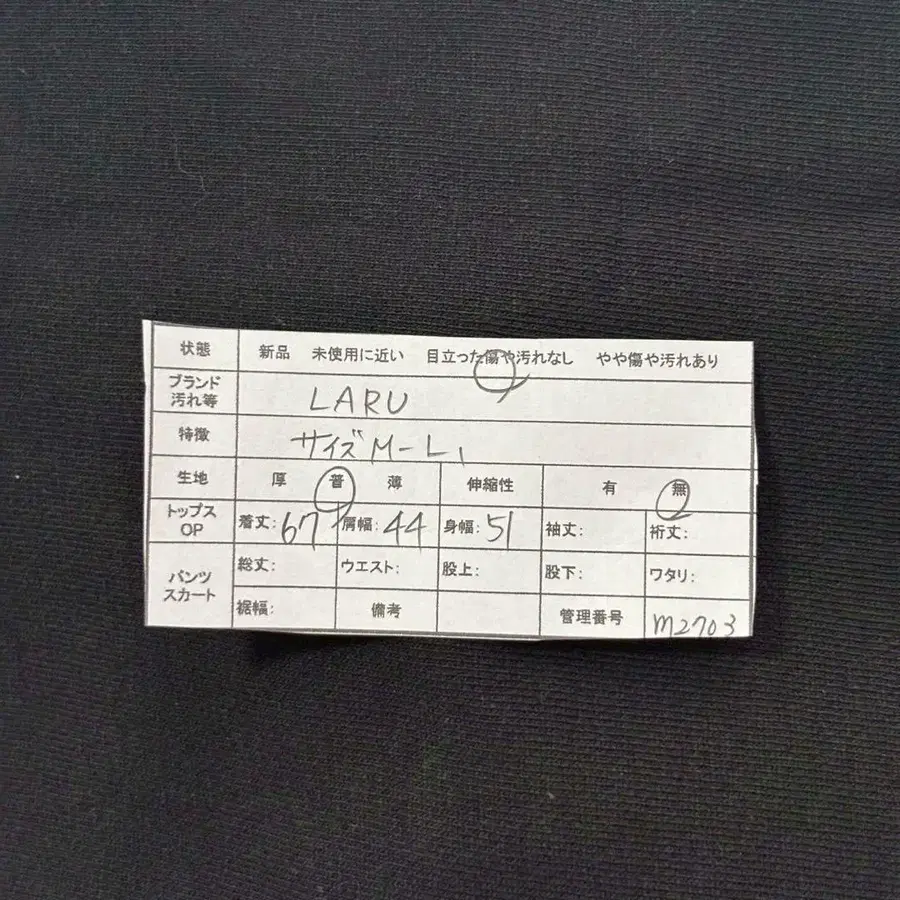 状態 新品 未使用に近い 目立った傷や汚れなし やや傷や汚れあり
ブランド
汚れ等
LARU
特徴 サイズM-L
生地 厚 普 薄 伸縮性 有 無
トップス
OP
着丈:67 肩幅:44 身幅:51 袖丈: 裄丈:
パンツ
スカート
総丈: ウエスト: 股上: 股下: ワタリ:
裾幅: 備考 管理番号 m2703